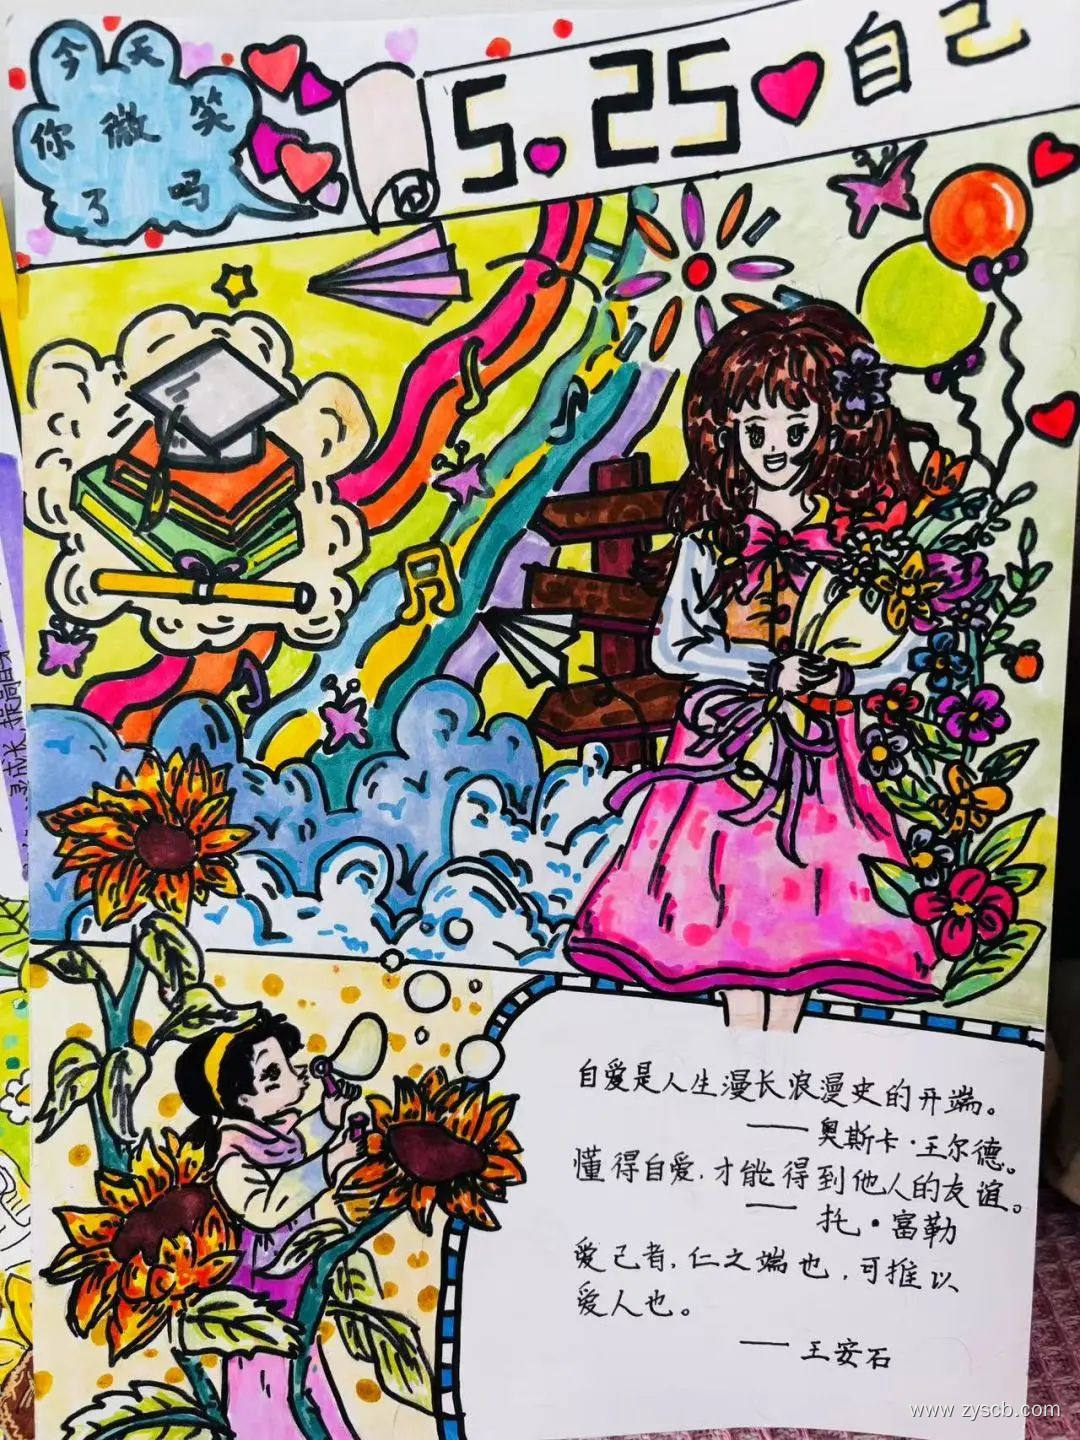 今天
你微笑
了吗
5.25自己
自爱是人生漫长浪漫史的开端。
——奥斯卡·王尔德。
懂得自爱,才能得到他人的友谊。
—— 托·富勒
爱己者,仁之端也,可推以
爱人也。
—— 王安石
www.zyscb.com